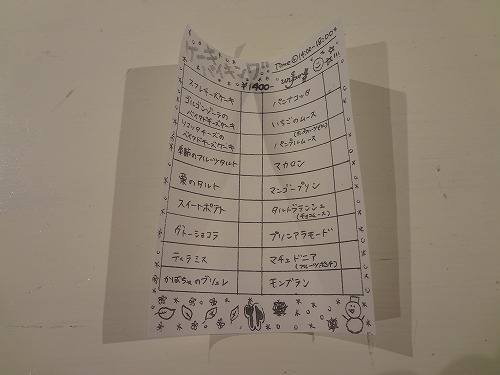 ケーキ
バイキング
Time ⓪14:00-18:00
¥1400-
スフレチーズケーキ
ゴルゴンゾーラの
ベイクドチーズケーキ
リコッタチーズの
ベイクドチーズケーキ
季節のフルーツタルト
栗のタルト
スイートポテト
ガトーショコラ
ティラミス
かぼちゃのブリュレ
パンナコッタ
いちごのムース
バニラムース
マカロン
マンゴープリン
タルトグランシュ
(チョコムース)
プリンアラモード
マチェドニア
(フルーツポンチ)
モンブラン